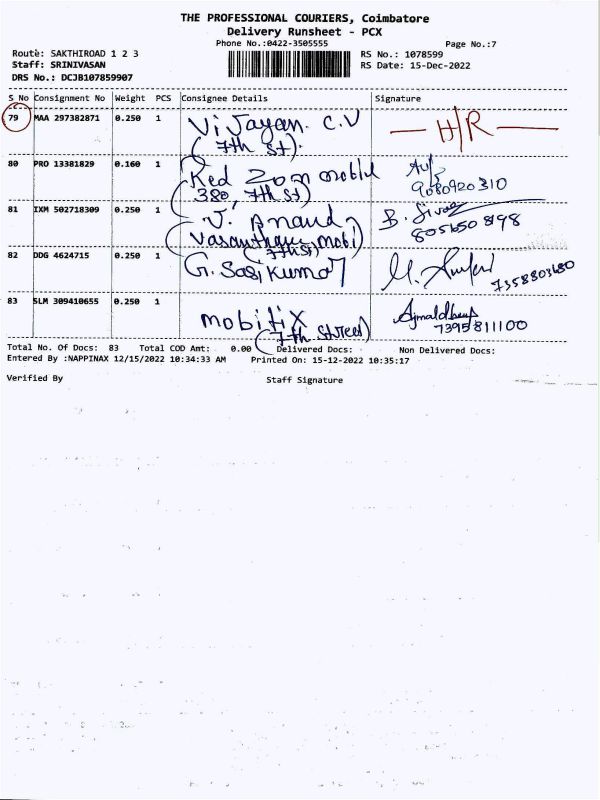 THE PROFESSIONAL COURIERS, Coimbatore
Delivery Runsheet - PCX
Phone No.:0422-3505555 Page No.:7
Route: SAKTHIROAD 1 2 3 RS No.: 1078599
Staff: SRINIVASAN RS Date: 15-Dec-2022
DRS No.: DCJB107859907
S No Consignment No Weight PCS Consignee Details Signature
79 MAA 297382871 0.250 1 Vijayan. C.V H/R
(7th st).
80 PRO 13381829 0.160 1 Red Zom mobile
380, 7th st) 9080920310
81 IXM 502718309 0.250 1 V. Anand B. Siva
mobi) 8056508198
(7th st)
82 DDG 4624715 0.250 1 G. Sasikumar M.
7358803680
83 SLM 309410655 0.250 1 mobitix
(7th street) 7395811100
Total No. Of Docs: 83 Total COD Amt: 0.00 Delivered Docs: Non Delivered Docs:
Entered By :NAPPINAX 12/15/2022 10:34:33 AM Printed On: 15-12-2022 10:35:17
Verified By Staff Signature